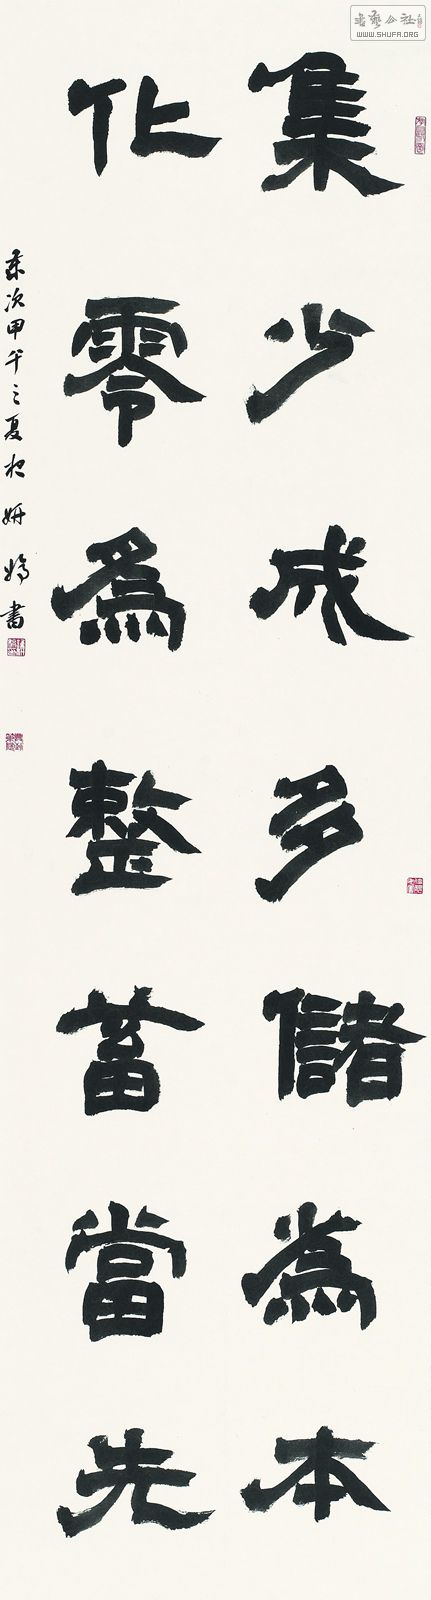 集少成多儲為本
化零為整蓄當先
歲次甲午之夏於妍嬌書
書藝公社
WWW.SHUFA.ORG